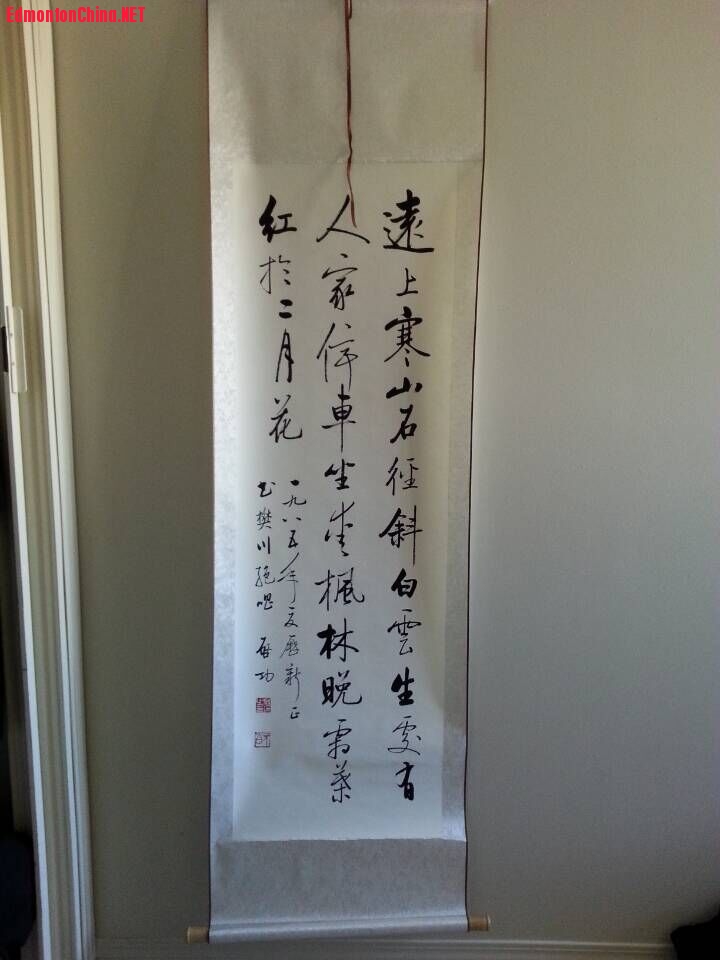 EdmontonChina.NET
遠上寒山石徑斜白雲生處有
人家停車坐愛楓林晚霜葉
紅於二月花
一九八五年夏歷新正
書樊川絕唱 啟功